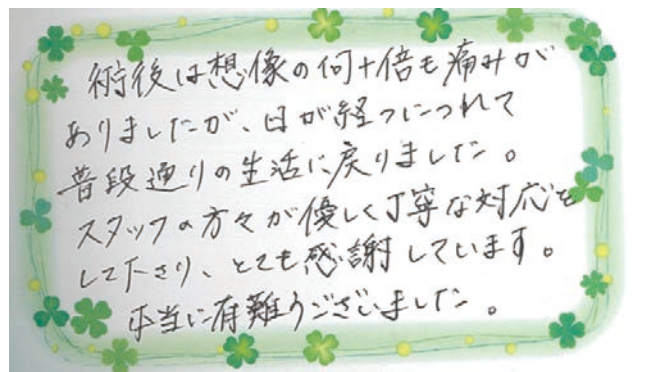 術後は想像の何十倍も痛みが
ありましたが、日が経つにつれて
普段通りの生活に戻りました。
スタッフの方々が優しく丁寧な対応を
して下さり、とても感謝しています。
本当に有難うございました。